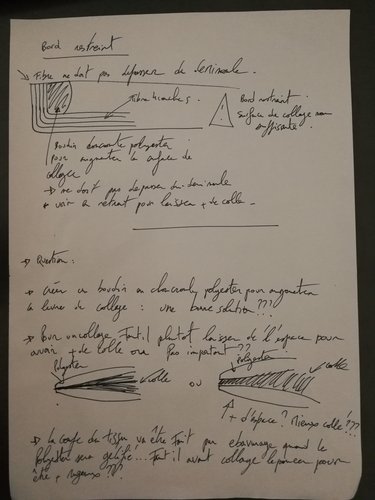 Bord restreint
→ Fibre ne doit pas depasser de demi moule.
Fibre 4 couches
Bord restreint
surface de collage non
suffisante.
Boudin choucroute polyester
pour augmenter la surface de
collage
→ ne doit pas depasser du demi moule
voir a retrait pour laisser + de colle.
→ Question :
créer un boudin en choucroute polyester pour augmenter
la levre de collage : une bonne solution ???
Pour un collage Faut il plutot laisser de l'espace pour
avoir + de colle ou Pas important ??
Polyester
colle
ou
Polyester
colle
+ d'espace ? Mieux collé ???
→ la coupe du tissu va être fait par ebavurage quand le
Polyester sera gélifié... Faut il avant collage le poncer pour
être + rugueux ???